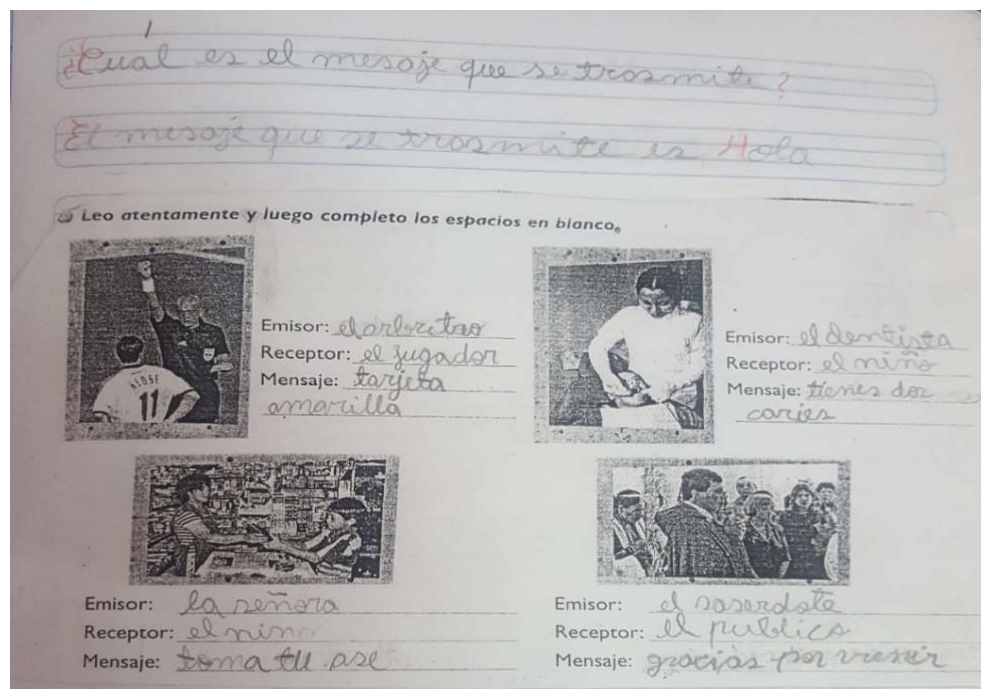 ¿Cuál es el mesaje que se trasmite?
El mesaje que se trasmite es Hola
Leo atentamente y luego completo los espacios en blanco.
Emisor: el arbritao
Receptor: el jugador
Mensaje: tarjeta
amarilla
KLOSE
11
Emisor: el dentista
Receptor: el niño
Mensaje: tienes dos
caries
Emisor: la señora
Receptor: el niño
Mensaje: toma tu ase
Emisor: el saserdote
Receptor: el publico
Mensaje: gracias por venir